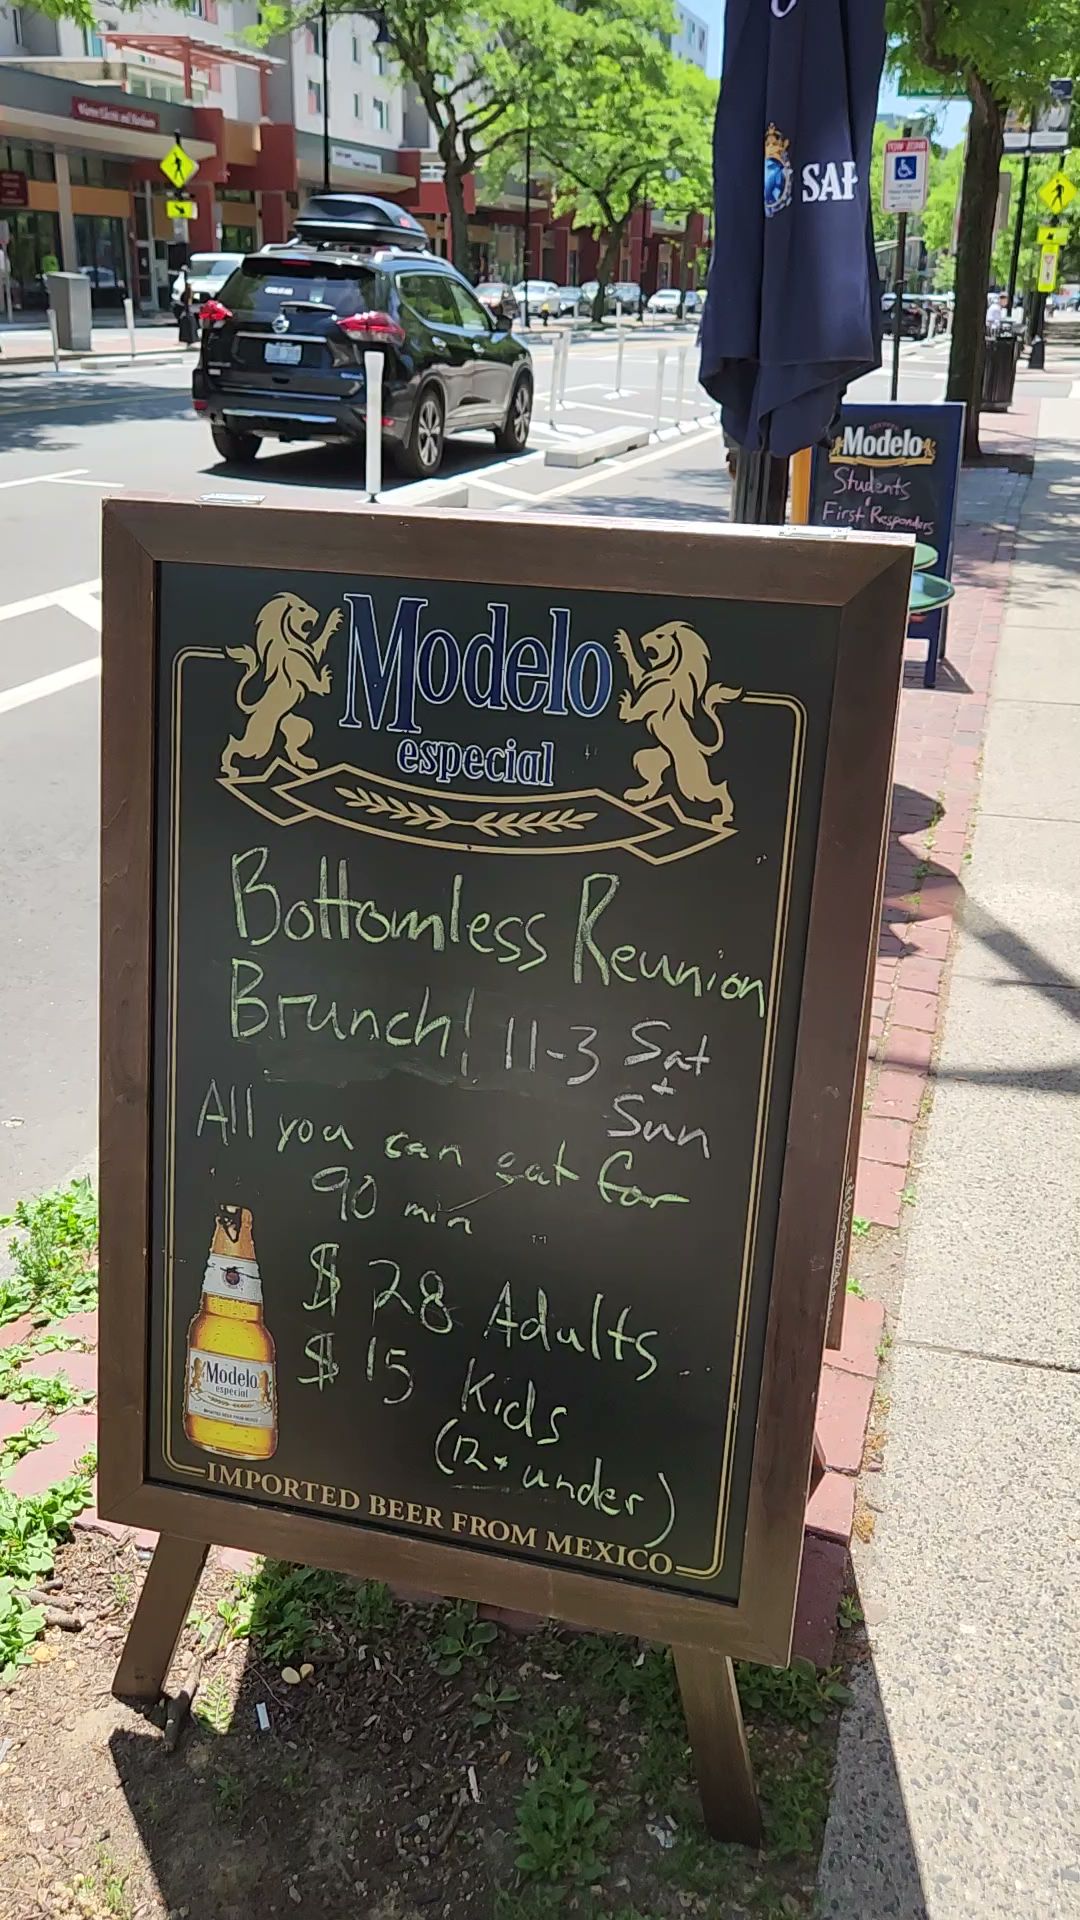 SAF
TOW ZONE
Modelo
Students
First Responders
Modelo
especial
Bottomless Reunion
Brunch! 11-3 Sat
+
Sun
All you can eat for
90 min
$28 Adults
$15 Kids
(12 + under)
Modelo
especial
IMPORTED BEER FROM MEXICO